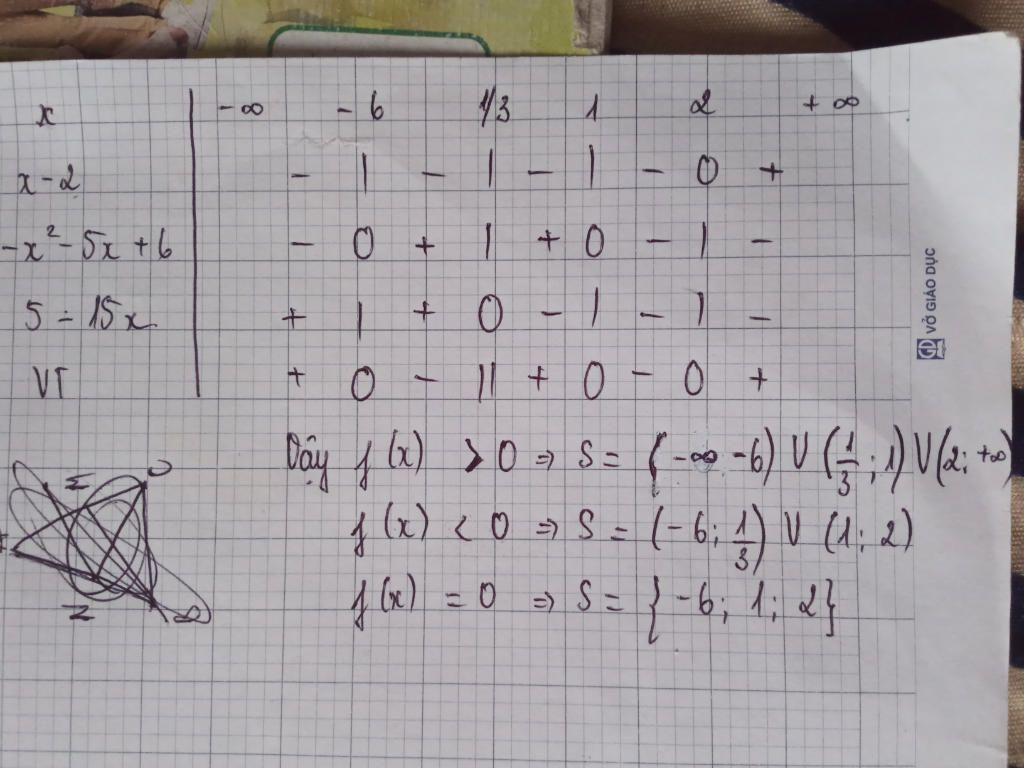 x -∞ -6 1/3 1 2 +∞
x-2 - | - | - | - 0 +
-x²-5x+6 - 0 + | + 0 - | -
5-15x + | + 0 - | - | -
VT + 0 - || + 0 - 0 +
Vậy f(x) > 0 ⇒ S = (-∞ -6) ∪ (1/3; 1) ∪ (2; +∞)
f(x) < 0 ⇒ S = (-6; 1/3) ∪ (1; 2)
f(x) = 0 ⇒ S = {-6; 1; 2}
GD VỞ GIÁO DỤC